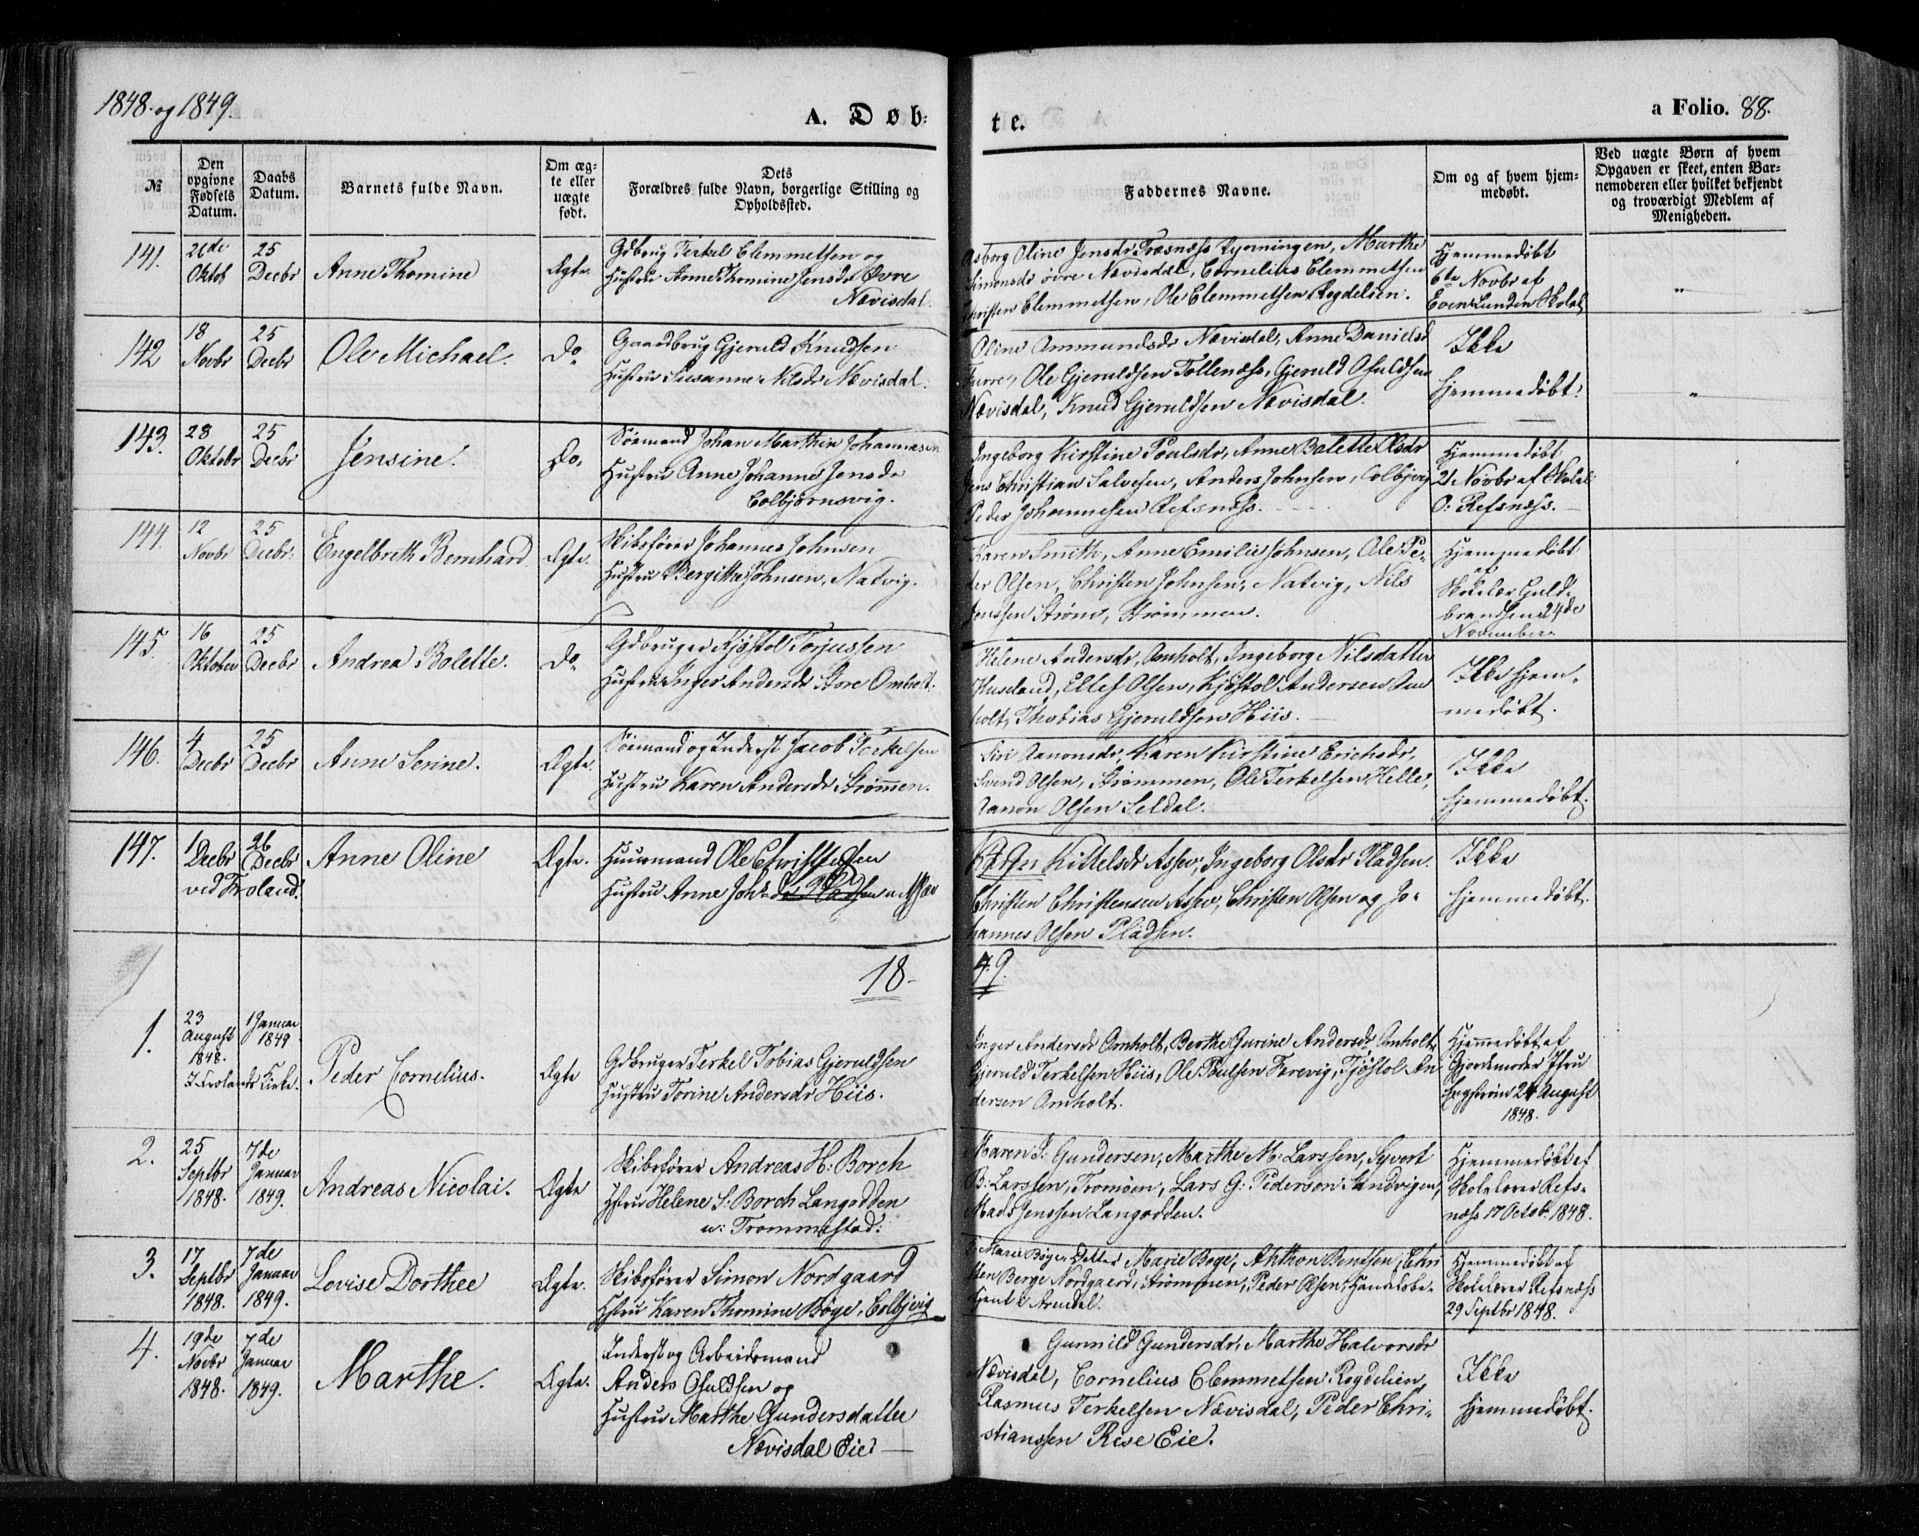 1848 og 1849.
A. Døb-
te.
a Folio. 88.
№
Den opgivne Fødsels Datum.
Daabs Datum.
Barnets fulde Navn.
Om ægte eller uægte født.
Dets Forældres fulde Navn, borgerlige Stilling og Opholdssted.
Faddernes Navne.
Om og af hvem hjemmedøbt.
Ved uægte Børn af hvem Opgaven er skeet, enten Barnemoderen eller hvilket bekjendt og troværdigt Medlem af Menigheden.
141.
Oktob
25 Decbr
Anne Thomine
Ægte.
Gdbrug Terkel Clemmetsen og
Hustru Anne Thomine Jensdr Øvre
Nævisdal.
Oline Jensdr Marthe
Simonsdr øvre Nævisdal, Cornelius Clemmetsen
Christen Clemmetsen, Ole Clemmetsen Rægdelien.
Hjemmedøbt
6te Novbr af
Even Lunden Skolel
"
142
18 Novbr
25 Decbr
Ole Michael.
Do
Gaardbrug Gjeruld Knudsen
Hustru Susanne Nilsdr Nævisdal.
Oline Ammundsdr Nævisdal, Anne Danielsd
Furre, Ole Gjeruldsen Tollenæss, Gjeruld Osuldsen
Nævisdal, Knud Gjeruldsen Nævisdal.
Ikke
hjemmedøbt.
"
143.
28 Oktobr
25 Decbr
Jensine.
Do.
Sømand Johan Marthin Johannesen
Hustru Anne Johanne Jensdr
Colbjørnsvig.
Ingeborg Kirstine Poulsdr, Anne Bolette Olsdr
Jens Christian Salvesen, Anders Johnsen, Colbjvig
Peder Johannesen Refsnæss.
Hjemmedøbt
21 Novbr af Skolel
O. Refsnæss.
144.
12 Novbr
25 Decbr.
Engelbreth Bernhard
Ægte.
Skibsfører Johannes Johnsen
Hustru Bergitte Johnsen, Natvig.
Karen Smith, Anne Emilie Johnsen, Ole Pe-
der Olsen, Christen Johnsen, Natvig, Nils
Jenssen Strøm, Strømmen.
Hjemmedøbt
af
Skolelær Guld-
brandsen 24de
November
145.
16 Oktober
25 Decbr
Andrea Bolette.
Do
Gdbruger Kjøstol Torjussen
Hustru Inger Andersdr Store Omholt.
Helene Andersdr, Omholt, Ingeborg Nilsdatter
Huseland, Ellef Olsen, Kjøstol Andersen Om
holt, Thobias Gjeruldsen Hiis.
Ikke hjem-
medøbt.
146.
4 Decbr
25 Decbr
Anne Serine.
Ægte.
Sømand og Inderst Jacob Terkelsen
Hustru Karen Andersdr Strømmen.
Siri Aanonsdr, Karen Kirstine Erichsdr,
Svend Olsen, Strømmen, Ole Terkelsen Helle,
Aanon Olsen Seldal.
Ikke
hjemmedøbt.
147.
1 Decbr
26 Decbr
ved Froland.
Anne Oline
Ægte.
Huusmand Ole Christensen
Hustru Anne
Kittelsdr Assev, Ingeborg Olsdr Pladsen.
Christen Christensen Assev, Christen Olsen og Jo-
hannes Olsen Pladsen.
Ikke
hjemmedøbt.
18
49.
1.
23 August 1848.
1 Januar 1849
I Frolands Kirke.
Peder Cornelius.
Ægte
Gdbruger Terkel Tobias Gjeruldsen
Hustru Torine Andersdr Hiis.
Inger Andersdr Omholt, Berthe Gurine Andersdr Omholt
Gjeruld Terkelsen Hiis, Ole Poulsen Forevig, Tjøstol An-
dersen Omholt.
Hjemmedøbt af
Gjordemoder Fhru
Engstrøm 24 August
1848.
2.
25 Septbr 1848.
7de Januar 1849.
Andreas Nicolai.
Ægte
Skibsfører Andreas H: Borch
Hstru Helene S: Borch Langodden
u: Trommestad.
Maren J: Gundersen, Marthe M: Larssen, Syvert
B: Larssen, Tromøen, Lars G: Pederson Sandvigen,
Mads Jenssen Langodden.
Hjemmedøbt af
Skolelærer Refs-
næss 17 Octob. 1848.
3.
17 Septbr 1848.
7de Januar 1849.
Lovise Dorthee
Ægte.
Skibsfører Simon Nordgaard
Hstru Karen Thomine Bøge, Colbjvig
Marie Bøge, Anthon Bentsen, Chri
sten Berge Nordgaard, Strømmen, Peder Olsen, Handelsbe-
tjent i Arendal.
Hjemmedøbt af
Skolelærer Refsnæss
29 Septbr 1848.
4.
19de Novbr 1848.
7de Januar 1849.
Marthe.
Ægte.
Inderst og Arbeidsmand
Anders Osuldsen og
Hustru Marthe Gundersdatter
Nævisdal Eie.
Gunnild Gundersdr, Marthe Halvorsdr
Nævisdal, Cornelius Clemmetsen Rægdelien,
Rasmus Terkelsen Nævisdal, Peder Chri-
stianssen Rise Eie.
Ikke
hjemmedøbt.